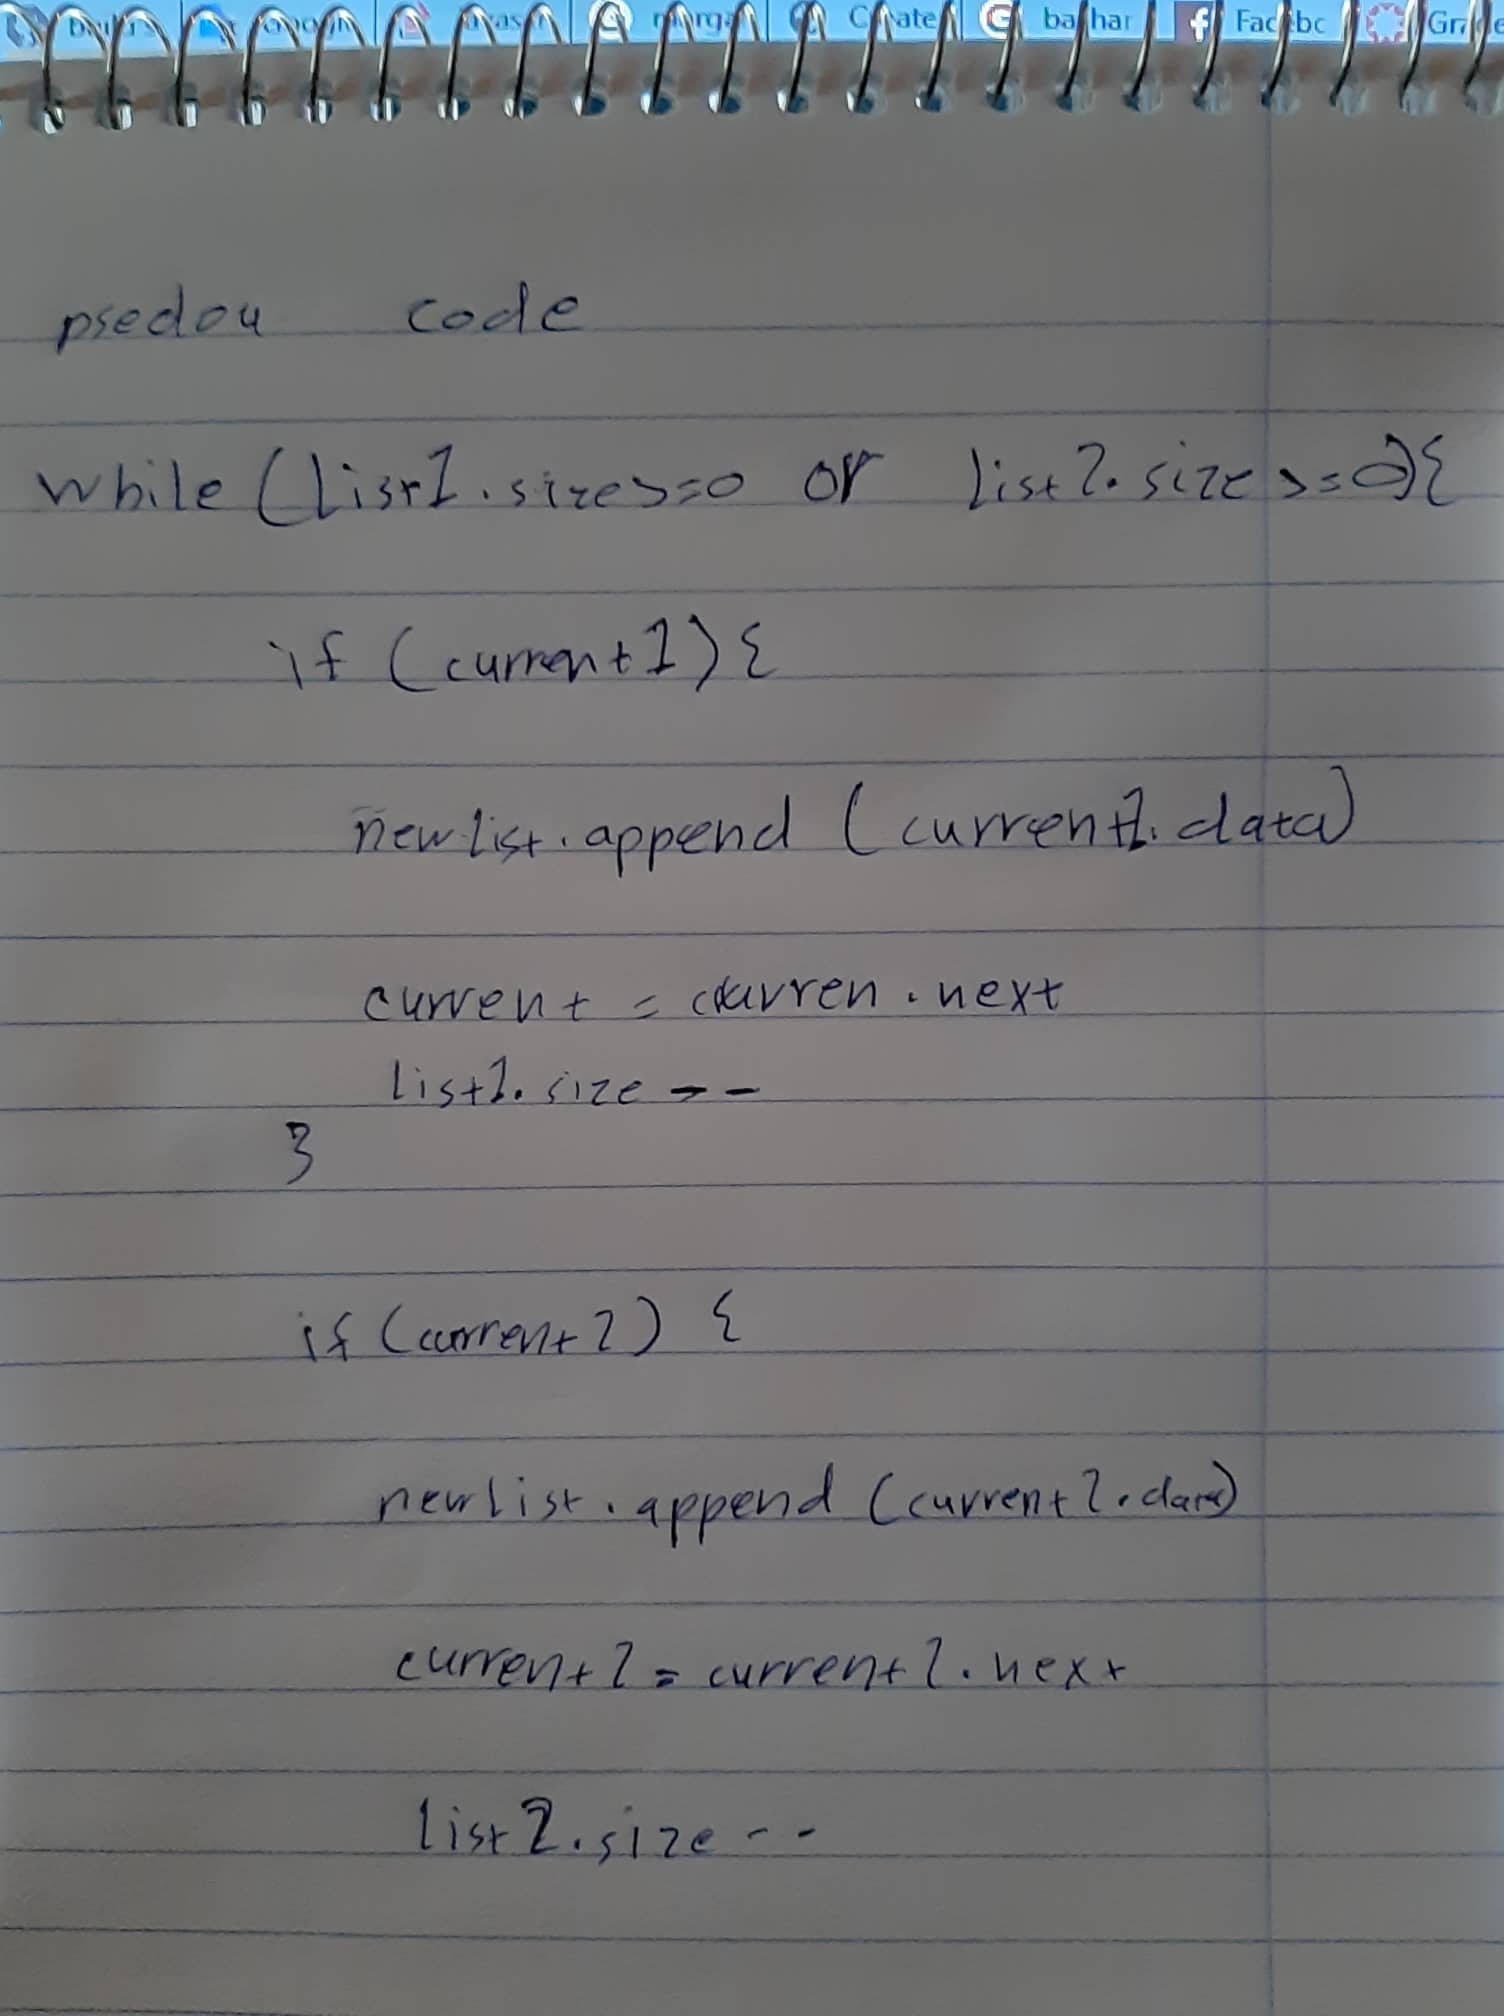 Create
bashar
psedou code
while (list1.size>=0 or list2.size >=0){
if (current1) {
newlist.append (current1.data)
current = curren.next
list1.size --
}
if (current2) {
newlist.append (current2.data)
current2 = current2.next
list2.size --